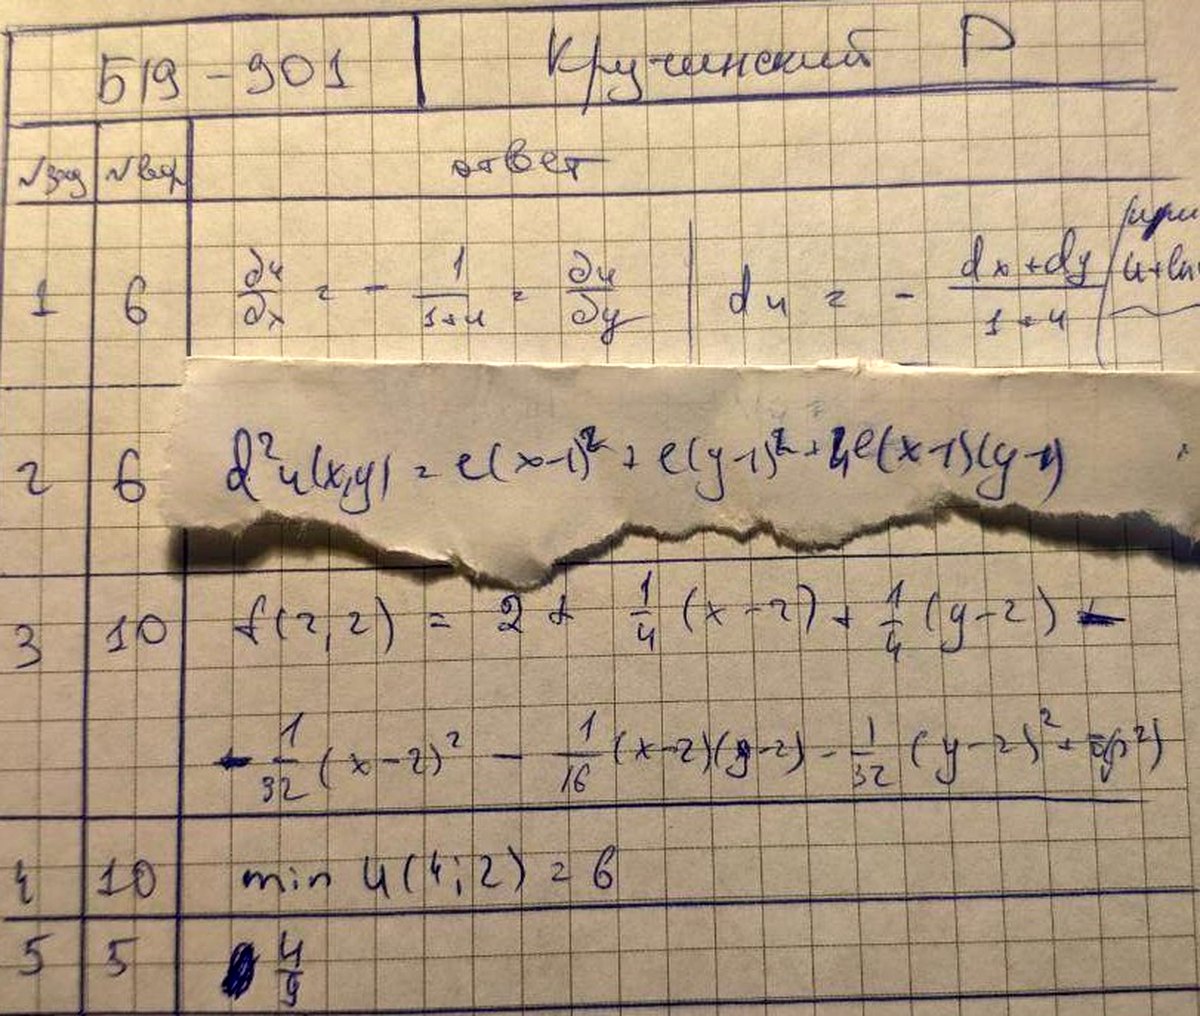 Б19-901 Кручинский Р
№зад №вар ответ
1 6 ∂u/∂x = - 1/(1+u) = ∂u/∂y | du = - (dx+dy)/(1+u) (при
2 6 d²u(x,y) = e(x-1)² + e(y-1)² + 4e(x-1)(y-1)
3 10 f(2,2) = 2 + 1/4 (x-2) + 1/4 (y-2) -
- 1/32 (x-2)² - 1/16 (x-2)(y-2) - 1/32 (y-2)² + o(ρ²)
4 10 min u(4;2) = 6
5 5 4/9